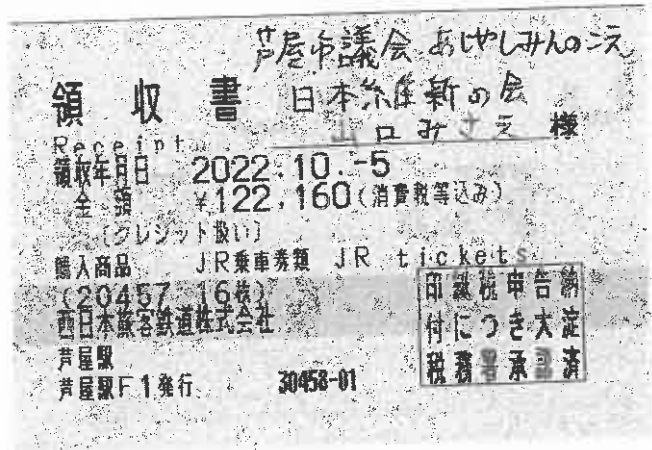 芦屋市議会 あしやしみんのこえ
日本維新の会
領収書
山口みさえ 様
Receipt
領収年月日 2022.10.-5
金額 ¥122,160(消費税等込み)
(クレジット扱い)
購入商品 JR乗車券類 JR tickets
(20457 16枚)
西日本旅客鉄道株式会社
芦屋駅
芦屋駅F1発行 30458-01
印紙税申告納
付につき大淀
税務署承認済